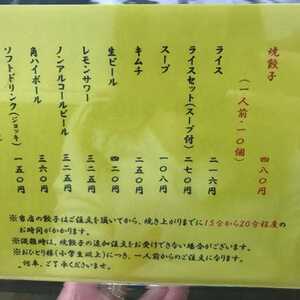 焼餃子(一人前・一〇個) 四八〇円
ライス 二一六円
ライスセット(スープ付) 二七〇円
スープ 一〇八円
キムチ 二五〇円
生ビール 四二〇円
レモンサワー 三二五円
ノンアルコールビール 三二五円
角ハイボール 三六〇円
ソフトドリンク(ジョッキ) 一五〇円
※当店の餃子はご注文を頂いてから、焼き上がりまでに15分から20分程度の
お時間がかかります。
※混雑時は、焼餃子の追加注文をお受けできない場合がございます。
※おひとり様(小学生以上)につき、一人前からのご注文になります。
何卒、ご了承くださいませ。